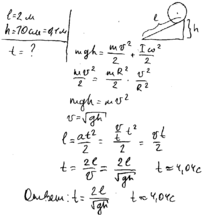 l=2м
h=10см=0,1м
t=?
l
h
mgh = mv²/2 + Iω²/2
mv²/2 = mR²/2 · v²/R²
mgh = mv²
v=√gh
l = at²/2 = (v/t · t²)/2 = vt/2
t = 2l/v = 2l/√gh t≈4,04с
Ответ: t = 2l/√gh t≈4,04с